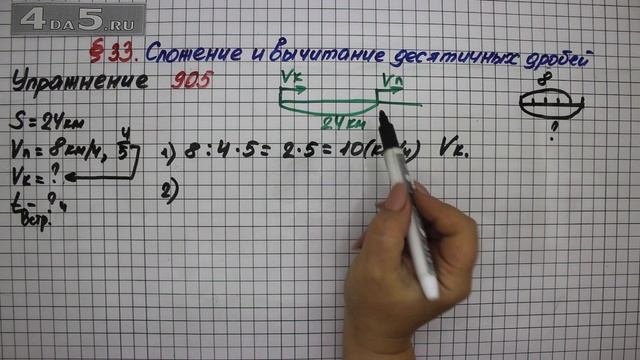 4DA5.RU
§ 33. Сложение и вычитание десятичных дробей
Упражнение 905
Vк Vп
8
24 км
?
S = 24 км
Vп = 8 км/ч, 4/5
Vк = ?
t встр. - ? ч
1) 8 : 4 · 5 = 2 · 5 = 10 (км/ч) Vк.
2)